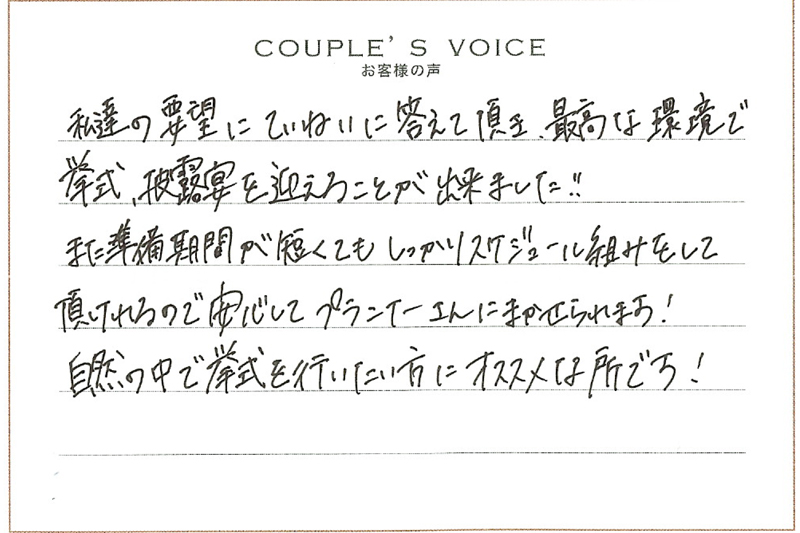 COUPLE'S VOICE
お客様の声
私達の要望にていねいに答えて頂き、最高な環境で
挙式、披露宴を迎えることが出来ました!!
また準備期間が短くてもしっかりスケジュール組みをして
頂けれるので安心してプランナーさんにまかせられます!
自然の中で挙式を行いたい方にオススメな所です!